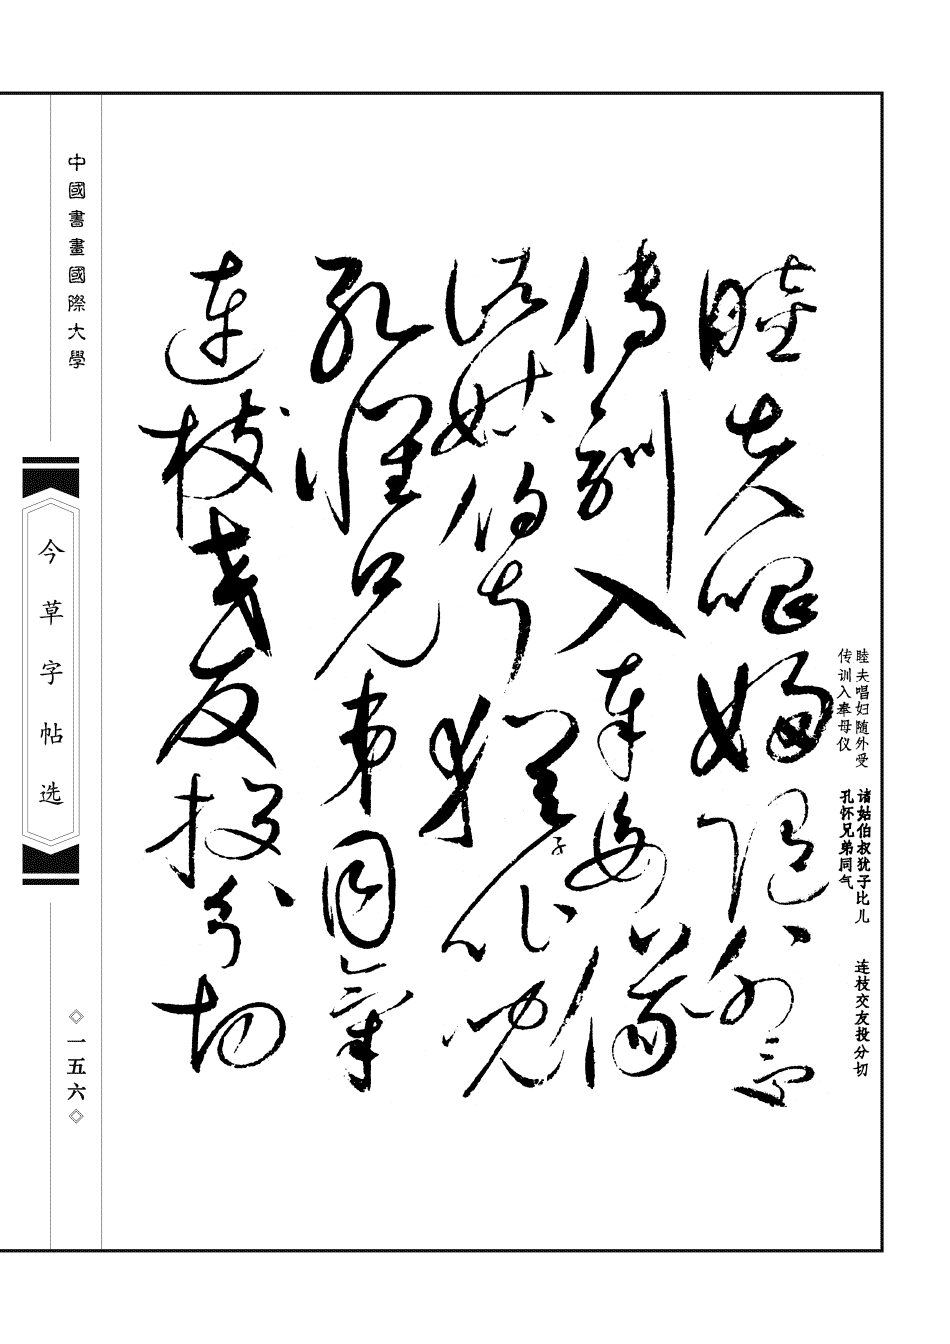 睦夫唱婦随外受
传训入奉母仪
诸姑伯叔犹子比儿
孔怀兄弟同气
连枝交友投分切
睦夫唱妇随外受
传训入奉母仪
诸姑伯叔犹子比儿
孔怀兄弟同气
连枝交友投分切
中國書畫國際大學
今草字帖选
◇一五六◇